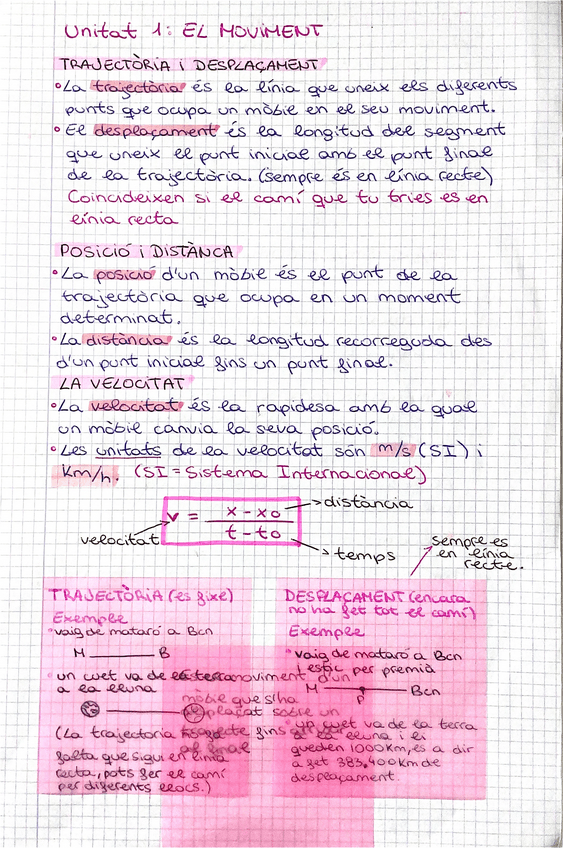 Unitat 1: EL MOVIMENT
TRAJECTÒRIA i DESPLAÇAMENT
•La trajectòria és la línia que uneix els diferents
punts que ocupa un mòbie en el seu moviment.
•El desplaçament és la longitud del segment
que uneix el punt inicial amb el punt final
de la trajectòria. (sempre és en línia recte)
Coincideixen si el camí que tu tries es en
línia recta
POSICIÓ i DISTÀNCA
•La posició d'un mòbie és el punt de la
trajectòria que ocupa en un moment
determinat.
•La distància és la longitud recorreguda des
d'un punt inicial fins un punt final.
LA VELOCITAT
•La velocitat és la rapidesa amb la qual
un mòbil canvia la seva posició.
•Les unitats de la velocitat són m/s (SI) i
Km/h. (SI = Sistema Internacional)
v = x - xo / t - to
distància
velocitat
temps
sempre es
en línia
recte.
TRAJECTÒRIA (es fixe)
Exemple
•vaig de mataró a Bcn
M B
un cuet va de la terra
a la lluna
(La trajectoria
falta que sigui en línia
recta, pots fer el camí
per diferents llocs.)
moviment d'un
mòbie que s'ha
desplaçat sobre un
fins
al final
DESPLAÇAMENT (encara
no ha fet tot el camí)
Exemple
•vaig de mataró a Bcn
i estic per premià
M P Bcn
•un cuet va de la terra
a la lluna i li
queden 1000km, és a dir
a fet 383,400km de
desplaçament.